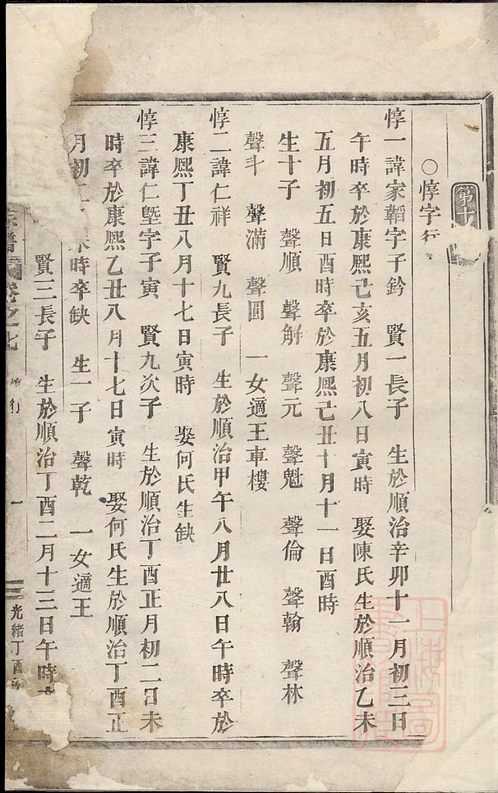 第十
○惇字行
惇一諱家韜字子鈐 賢一長子 生於順治辛卯十一月初三日
午時卒於康熙己亥五月初八日寅時 娶陳氏生於順治乙未
五月初五日酉時卒於康熙己丑十月十一日酉時
生十子 聲順 聲解 聲元 聲魁 聲倫 聲翰 聲林
聲斗 聲滿 聲圓 一女適王車樓
惇二諱仁祥 賢九長子 生於順治甲午八月廿八日午時卒於
康熙丁丑八月十七日寅時 娶何氏生缺
惇三諱仁塈字子寅 賢九次子 生於順治丁酉正月初二日未
時卒於康熙乙丑八月十七日寅時 娶何氏生於順治丁酉正
月初 未時卒缺 生一子 聲乾 一女適王
賢三長子 生於順治丁酉二月十三日午時
宗譜 卷之七 惇行 一 光緒丁酉